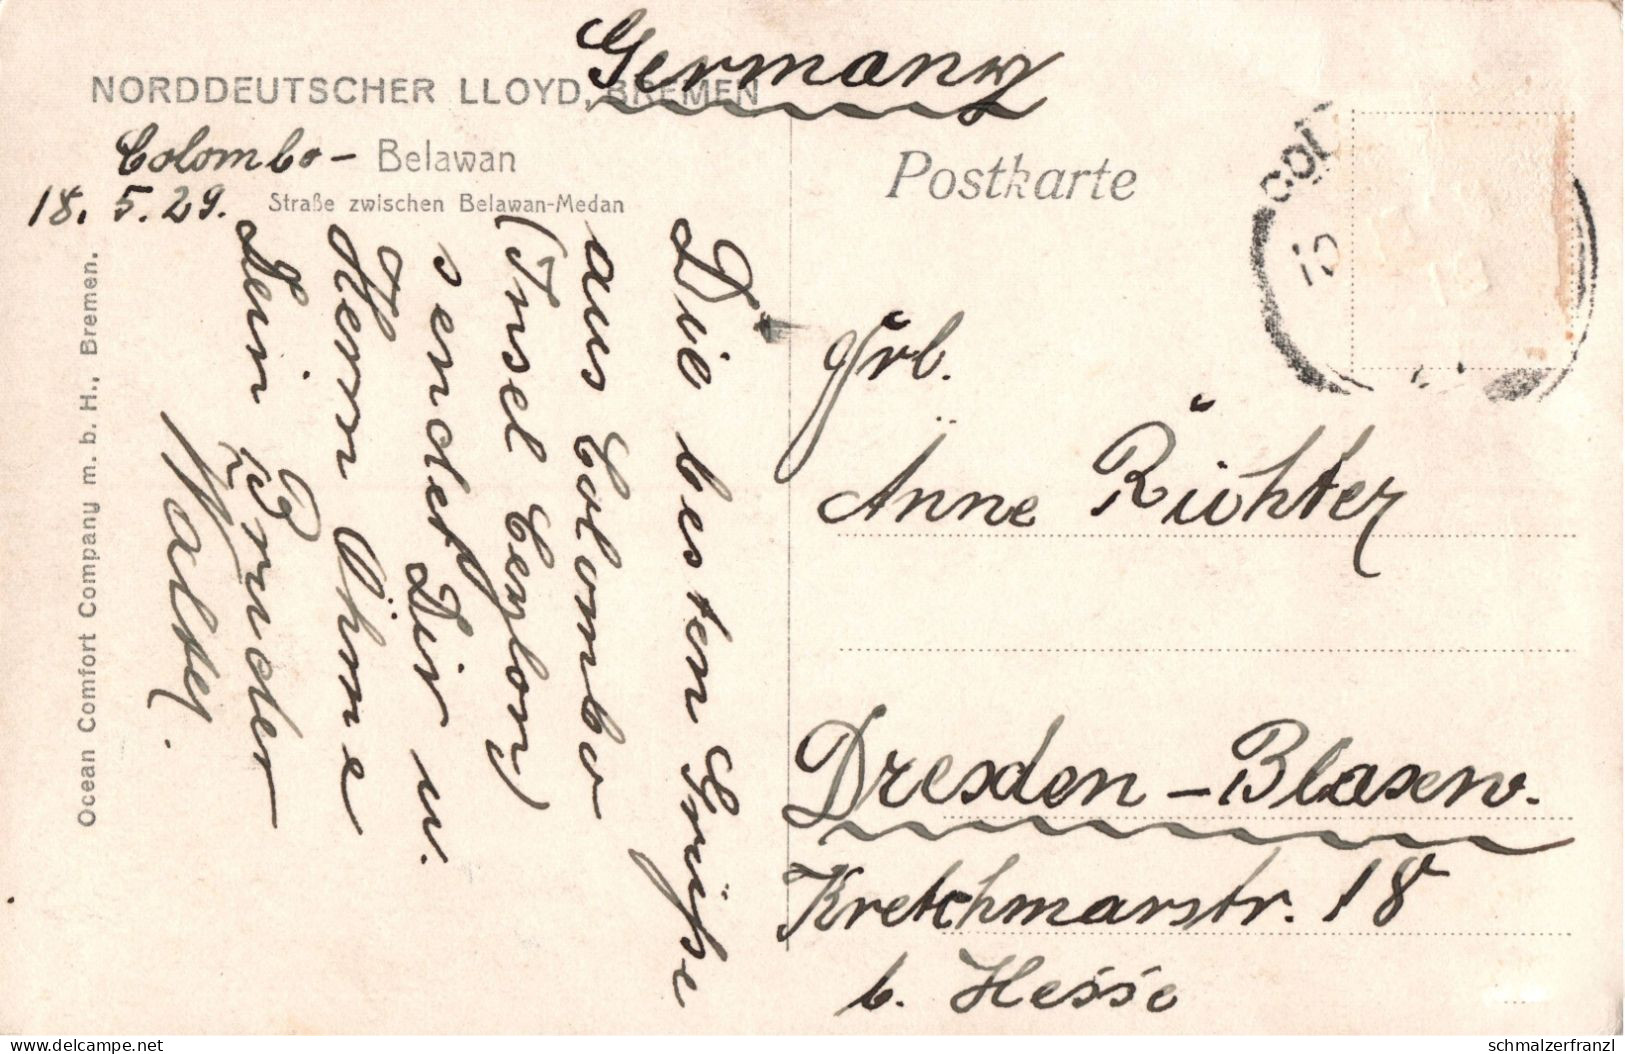 Germany
NORDDEUTSCHER LLOYD, BREMEN
Colombo - Belawan
18. 5. 29. Straße zwischen Belawan-Medan
Ocean Comfort Company m. b. H., Bremen.
Die besten Grüße
aus Colombo
(Insel Ceylon)
sendet Dir u.
Herrn Öhme
Dein Bruder
Walter.
Postkarte
COL
Frl.
Anne Richter
Dresden - Blasew.
Kretchmarstr. 18
b. Hesse
www.delcampe.net
schmalzerfranzl